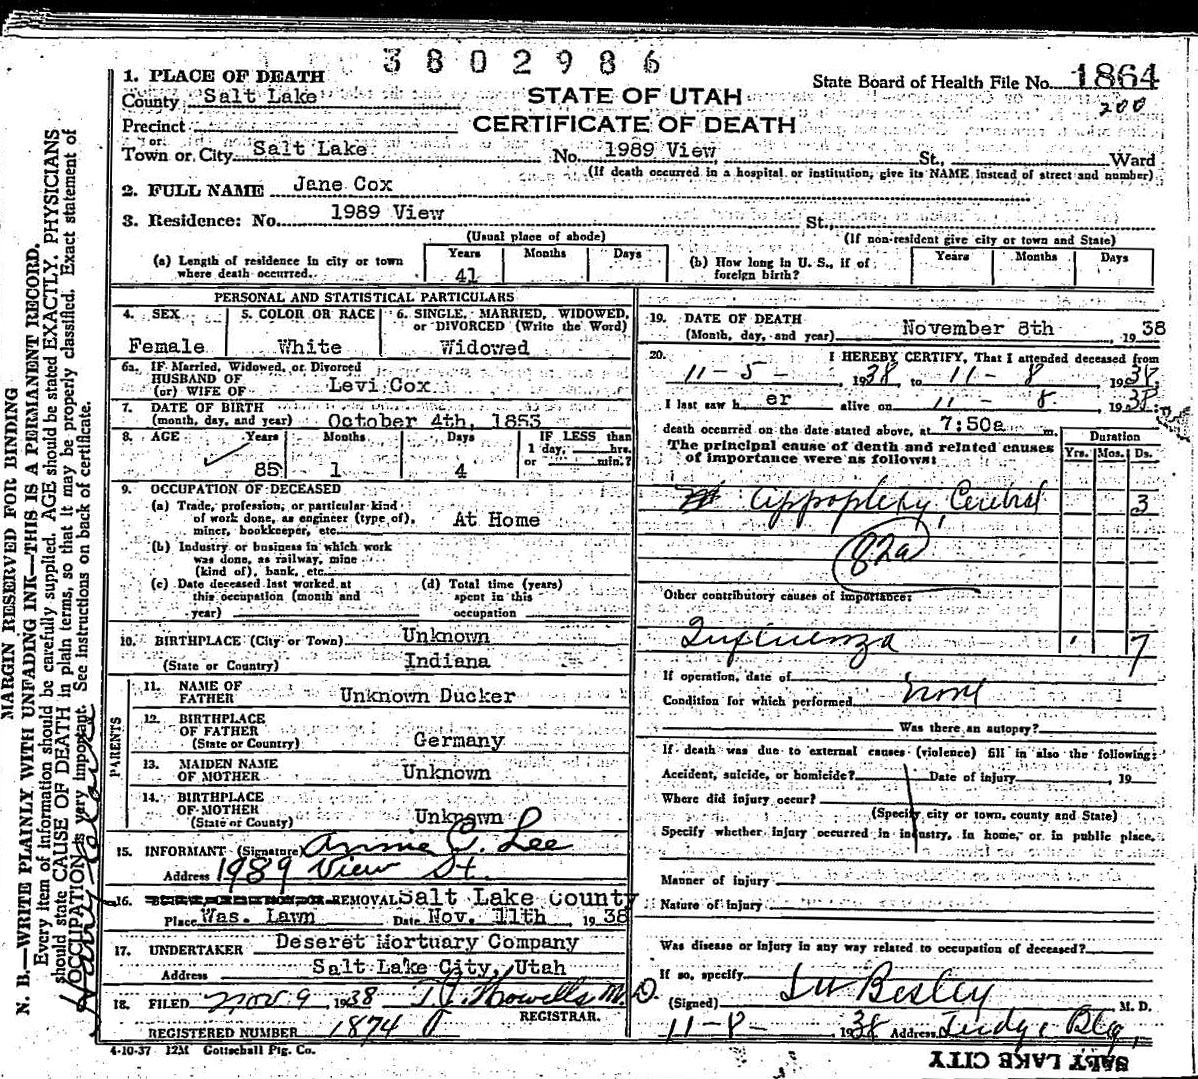 3802986
1. PLACE OF DEATH
State Board of Health File No. 1864
County Salt Lake
STATE OF UTAH
200
Precinct
CERTIFICATE OF DEATH
or
Town or City Salt Lake No. 1989 View, St., Ward
(If death occurred in a hospital or institution, give its NAME instead of street and number)
2. FULL NAME Jane Cox
3. Residence: No. 1989 View St.,
(Usual place of abode) (If non-resident give city or town and State)
(a) Length of residence in city or town where death occurred. Years 41 Months Days
(b) How long in U. S., if of foreign birth? Years Months Days
PERSONAL AND STATISTICAL PARTICULARS
4. SEX 5. COLOR OR RACE 6. SINGLE, MARRIED, WIDOWED,
or DIVORCED (Write the Word)
Female White Widowed
6a. IF Married, Widowed, or Divorced
HUSBAND OF
(or) WIFE OF Levi Cox
7. DATE OF BIRTH
(month, day, and year) October 4th, 1853
8. AGE Years Months Days IF LESS than
1 day, hrs.
or min.?
85 1 4
9. OCCUPATION OF DECEASED
(a) Trade, profession, or particular kind
of work done, as engineer (type of),
miner, bookkeeper, etc. At Home
(b) Industry or business in which work
was done, as railway, mine
(kind of), bank, etc.
(c) Date deceased last worked at
this occupation (month and
year)
(d) Total time (years)
spent in this
occupation
10. BIRTHPLACE (City or Town) Unknown
(State or Country) Indiana
PARENTS
11. NAME OF
FATHER Unknown Ducker
12. BIRTHPLACE
OF FATHER
(State or Country) Germany
13. MAIDEN NAME
OF MOTHER Unknown
14. BIRTHPLACE
OF MOTHER
(State or County) Unknown
15. INFORMANT (Signature) Annie C. Lee
Address 1989 View St.
16. REMOVAL Salt Lake County
Place Was. Lawn Date Nov. 11th 1938
17. UNDERTAKER Deseret Mortuary Company
Address Salt Lake City, Utah
18. FILED Nov 9, 1938 Howells M.D.
REGISTRAR.
REGISTERED NUMBER 1874
4-10-37 12M Gottschall Ptg. Co.
19. DATE OF DEATH
(Month, day, and year) November 8th 1938
20. I HEREBY CERTIFY, That I attended deceased from
11-5- 1938, to 11-8 1938.
I last saw her alive on 11-8 1938;
death occurred on the date stated above, at 7:50a m.
The principal cause of death and related causes
of importance were as follows:
Duration
Yrs. Mos. Ds.
Appoplexy, Cerebral 3
82a
Other contributory causes of importance:
Influenza 7
If operation, date of
Condition for which performed none
Was there an autopsy?
If death was due to external causes (violence) fill in also the following:
Accident, suicide, or homicide? Date of injury 19
Where did injury occur?
(Specify city or town, county and State)
Specify whether injury occurred in industry, in home, or in public place.
Manner of injury
Nature of injury
Was disease or injury in any way related to occupation of deceased?
If so, specify
(Signed) Besley M. D.
11-8- 1938 Address Judge Blg,
SALT LAKE CITY
MARGIN RESERVED FOR BINDING
N. B.—WRITE PLAINLY WITH UNFADING INK—THIS IS A PERMANENT RECORD.
Every item of information should be carefully supplied. AGE should be stated EXACTLY. PHYSICIANS
should state CAUSE OF DEATH in plain terms, so that it may be properly classified. Exact statement of
OCCUPATION is very important. See instructions on back of certificate.